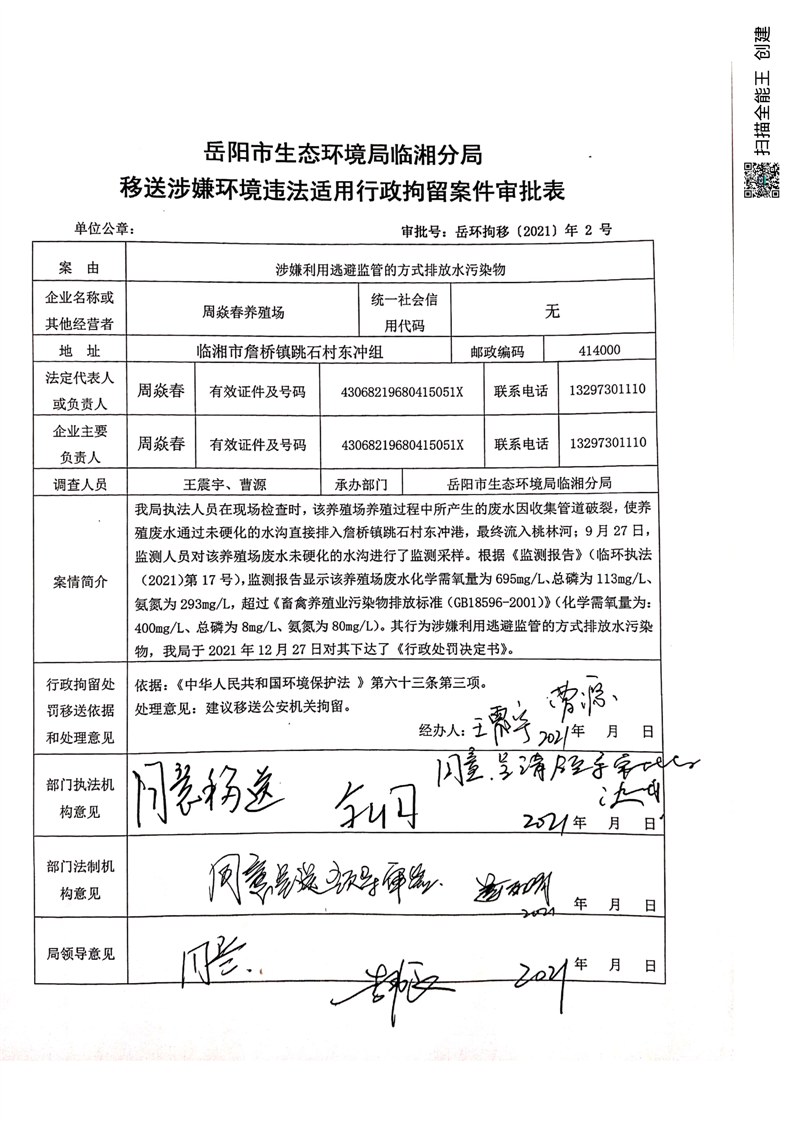 扫描全能王 创建
岳阳市生态环境局临湘分局
移送涉嫌环境违法适用行政拘留案件审批表
单位公章: 审批号: 岳环拘移〔2021〕年 2 号
案 由 涉嫌利用逃避监管的方式排放水污染物
企业名称或其他经营者 周焱春养殖场 统一社会信用代码 无
地 址 临湘市詹桥镇跳石村东冲组 邮政编码 414000
法定代表人或负责人 周焱春 有效证件及号码 43068219680415051X 联系电话 13297301110
企业主要负责人 周焱春 有效证件及号码 43068219680415051X 联系电话 13297301110
调查人员 王震宇、曹源 承办部门 岳阳市生态环境局临湘分局
案情简介
我局执法人员在现场检查时，该养殖场养殖过程中所产生的废水因收集管道破裂，使养
殖废水通过未硬化的水沟直接排入詹桥镇跳石村东冲港，最终流入桃林河；9 月 27 日，
监测人员对该养殖场废水未硬化的水沟进行了监测采样。根据《监测报告》（临环执法
(2021)第 17 号），监测报告显示该养殖场废水化学需氧量为 695mg/L、总磷为 113mg/L、
氨氮为 293mg/L，超过《畜禽养殖业污染物排放标准（GB18596-2001）》（化学需氧量为：
400mg/L、总磷为 8mg/L、氨氮为 80mg/L）。其行为涉嫌利用逃避监管的方式排放水污染
物，我局于 2021 年 12 月 27 日对其下达了《行政处罚决定书》。
行政拘留处罚移送依据和处理意见
依据：《中华人民共和国环境保护法 》第六十三条第三项。
处理意见：建议移送公安机关拘留。
经办人: 王震宇 曹源 2021年 月 日
部门执法机构意见
同意移送
同意.呈请
2021年 月 日
部门法制机构意见
同意呈送领导审批.
2021 年 月 日
局领导意见
同意.
2021 年 月 日